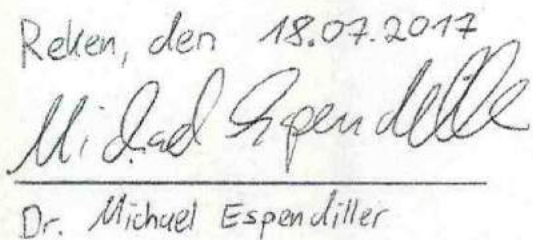 Reken, den 18.07.2017
Michael Espendiller
Dr. Michael Espendiller